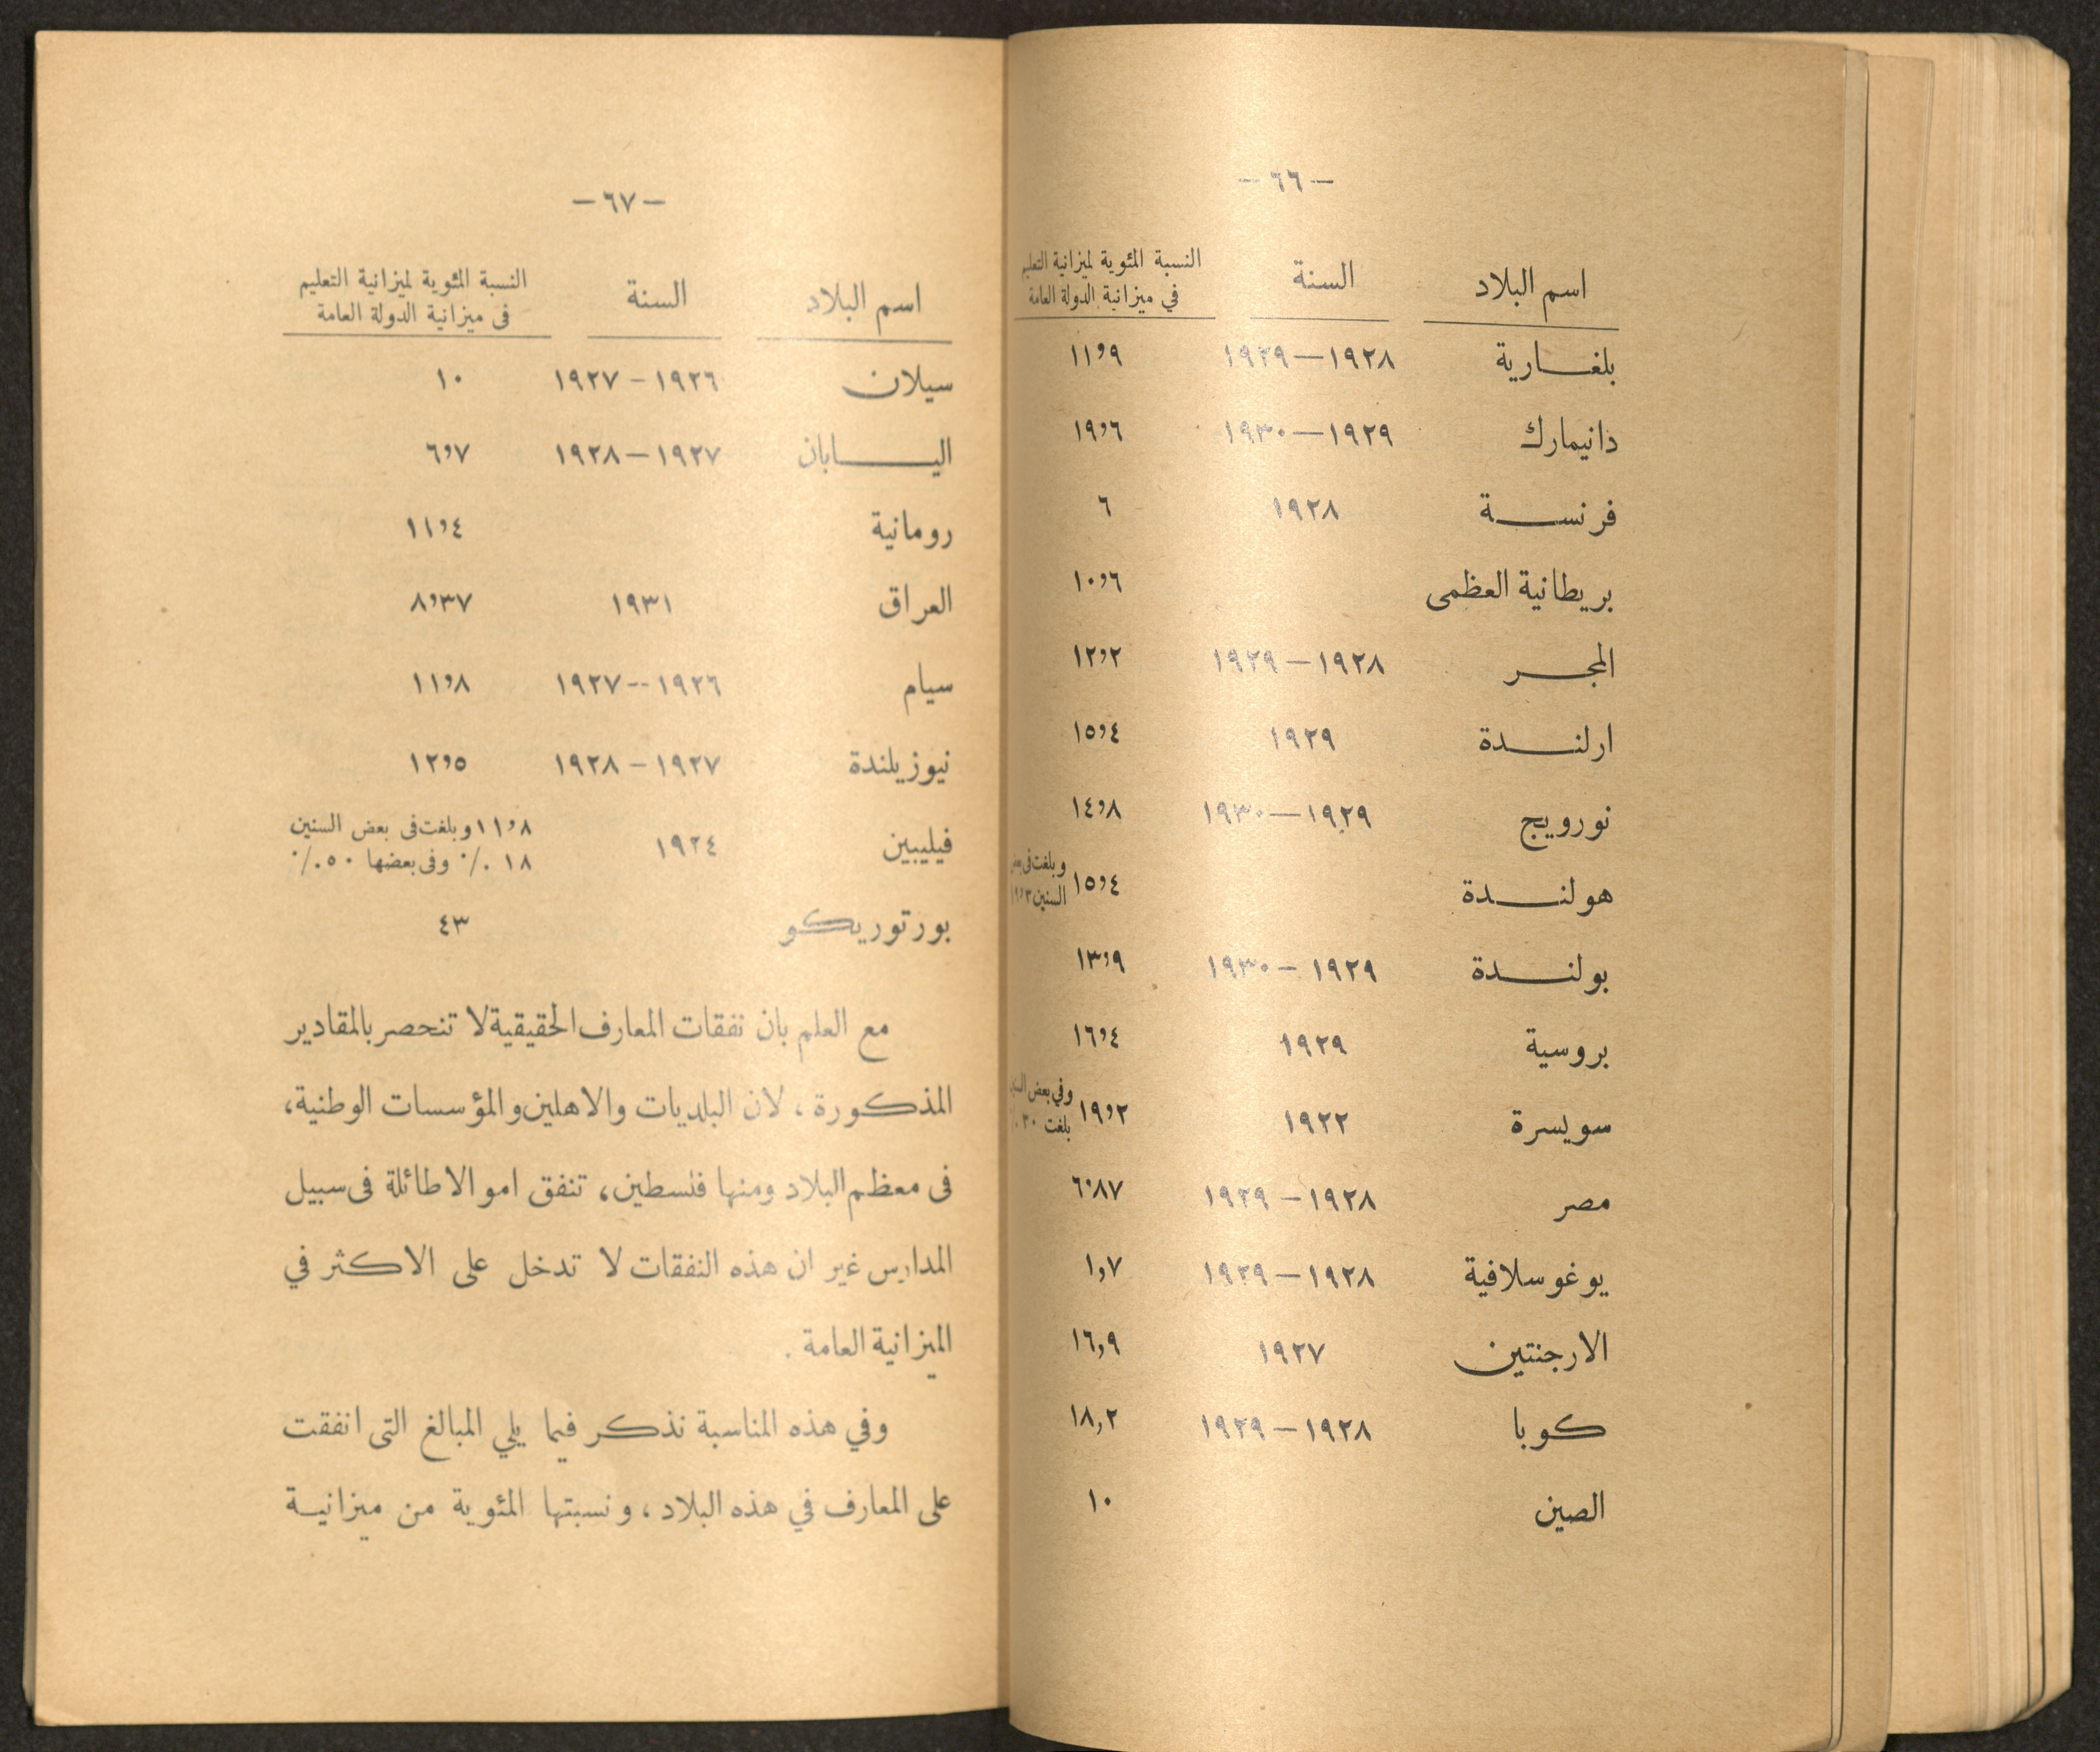 — ٦٦ —
اسم البلاد السنة النسبة المئوية لميزانية التعليم
في ميزانية الدولة العامة
بلغـــارية ١٩٢٨—١٩٢٩ ١١٫٩
دانيمارك ١٩٢٩—١٩٣٠ ١٩٫٦
فرنســـة ١٩٢٨ ٦
بريطانية العظمى ١٠٫٦
المجـــر ١٩٢٨—١٩٢٩ ١٢٫٢
ارلنـــدة ١٩٢٩ ١٥٫٤
نورويج ١٩٢٩—١٩٣٠ ١٤٫٨
هولنـــدة ١٥٫٤ وبلغت فى بعض
السنين ١٩٫٣
بولنـــدة ١٩٢٩—١٩٣٠ ١٣٫٩
بروسية ١٩٢٩ ١٦٫٤
سويسرة ١٩٢٢ ١٩٫٢ وفي بعض
بلغت ٢٠
مصر ١٩٢٨—١٩٢٩ ٦٫٨٧
يوغوسلافية ١٩٢٨—١٩٢٩ ١٫٧
الارجنتين ١٩٢٧ ١٦٫٩
كوبا ١٩٢٨—١٩٢٩ ١٨٫٢
الصين ١٠
— ٦٧ —
اسم البلاد السنة النسبة المئوية لميزانية التعليم
فى ميزانية الدولة العامة
سيلان ١٩٢٦—١٩٢٧ ١٠
اليـــابان ١٩٢٧—١٩٢٨ ٦٫٧
رومانية ١١٫٤
العراق ١٩٣١ ٨٫٣٧
سيام ١٩٢٦--١٩٢٧ ١١٫٨
نيوزيلندة ١٩٢٧—١٩٢٨ ١٢٫٥
فيليبين ١٩٢٤ ١١٫٨ وبلغت فى بعض السنين
١٨ ٪ وفى بعضها ٥٠ ٪
بورتوريكو ٤٣
مع العلم بان نفقات المعارف الحقيقية لا تنحصر بالمقادير
المذكورة ، لان البلديات والاهلين والمؤسسات الوطنية،
فى معظم البلاد ومنها فلسطين، تنفق اموالا طائلة فى سبيل
المدارس غير ان هذه النفقات لا تدخل على الاكثر في
الميزانية العامة .
وفي هذه المناسبة نذكر فيما يلي المبالغ التى انفقت
على المعارف في هذه البلاد ، ونسبتها المئوية من ميزانيـة